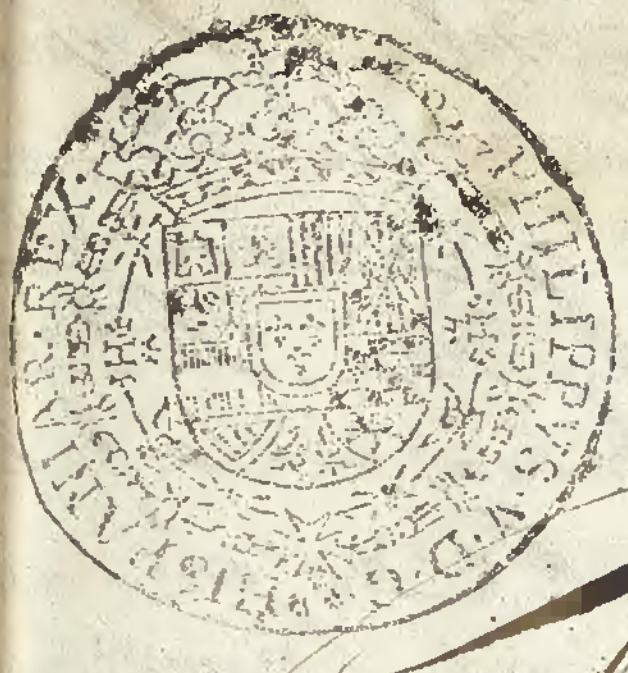 PHILIPPVS · V · D · G · HISPANIAR · REX ·